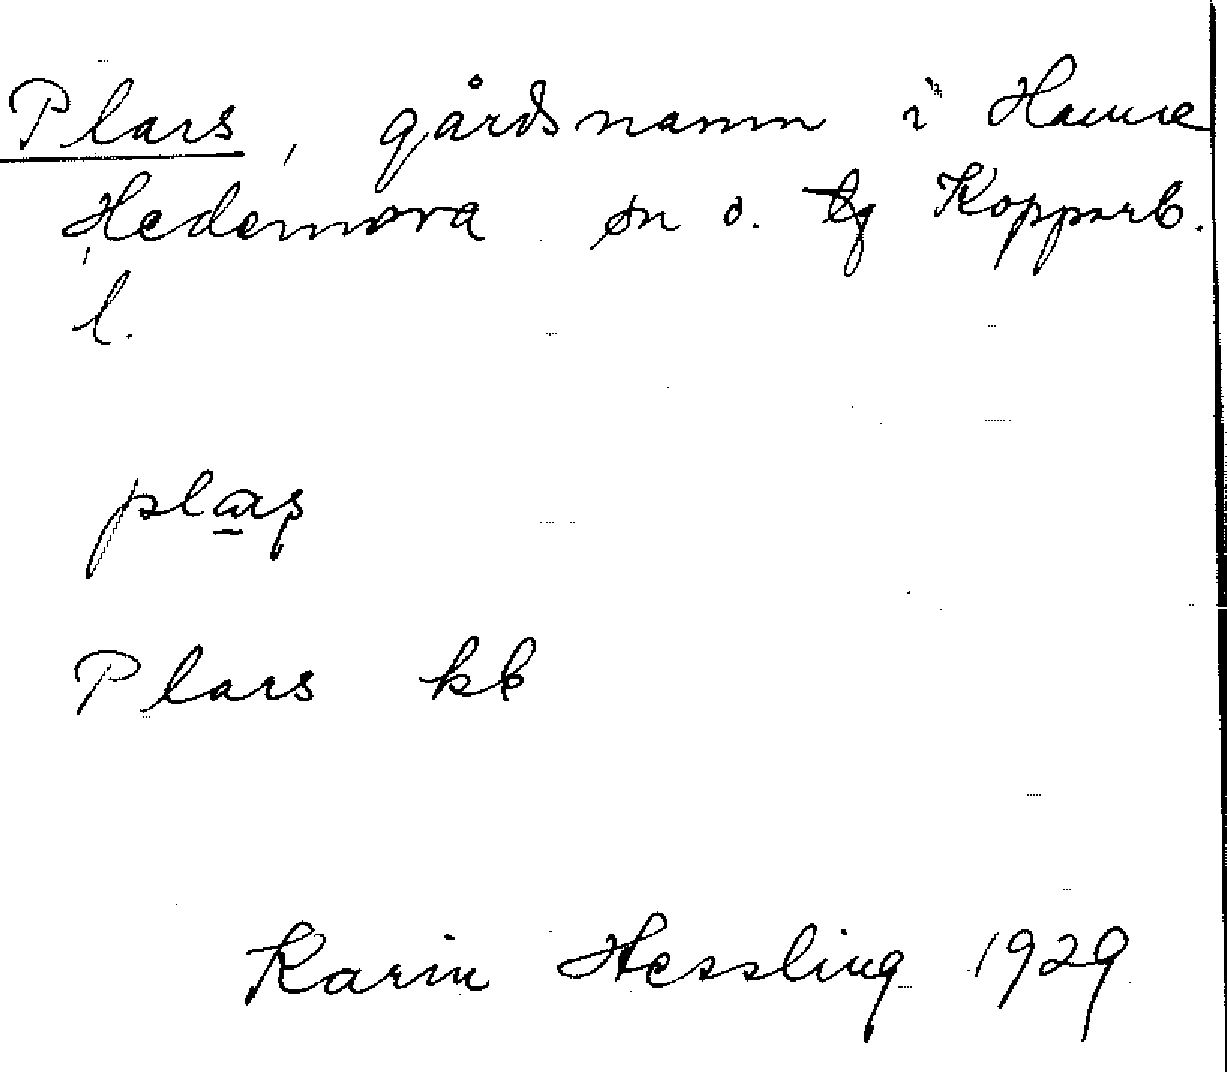 Plars, gårdsnamn i Hamre
Hedemora sn o. tg Kopparb.
l.
plaṟs
Plars kb
Karin Hessling 1929